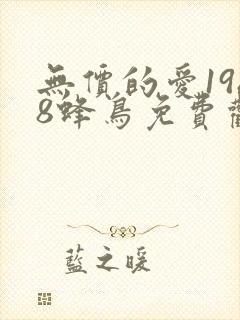 無價的愛19
8蜂鳥免費
藍之暖